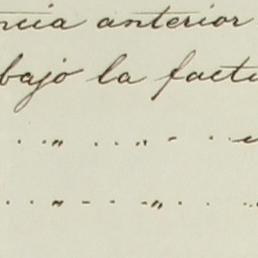 ncia anterior
bajo la factu
" "
" "